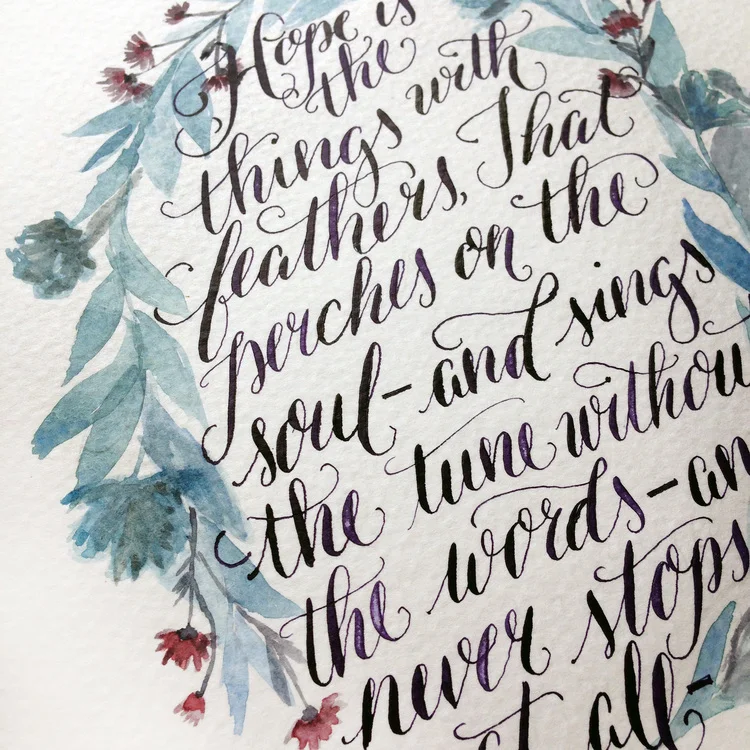 Hope is
the
things with
feathers, That
perches on the
soul- and sings
the tune withou
the words- an
never stops
at all-